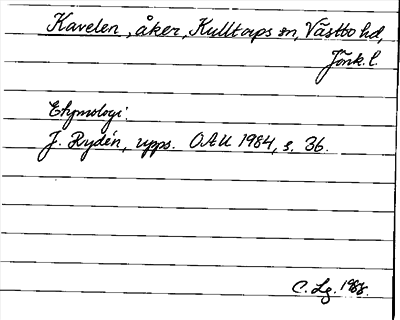 Kavelen, åker, Kulltorps sn, Västbo hd,
Jönk. l.
Etymologi:
J. Rydén, upps. OAU 1984, s. 36.
C. Lg. 1988.